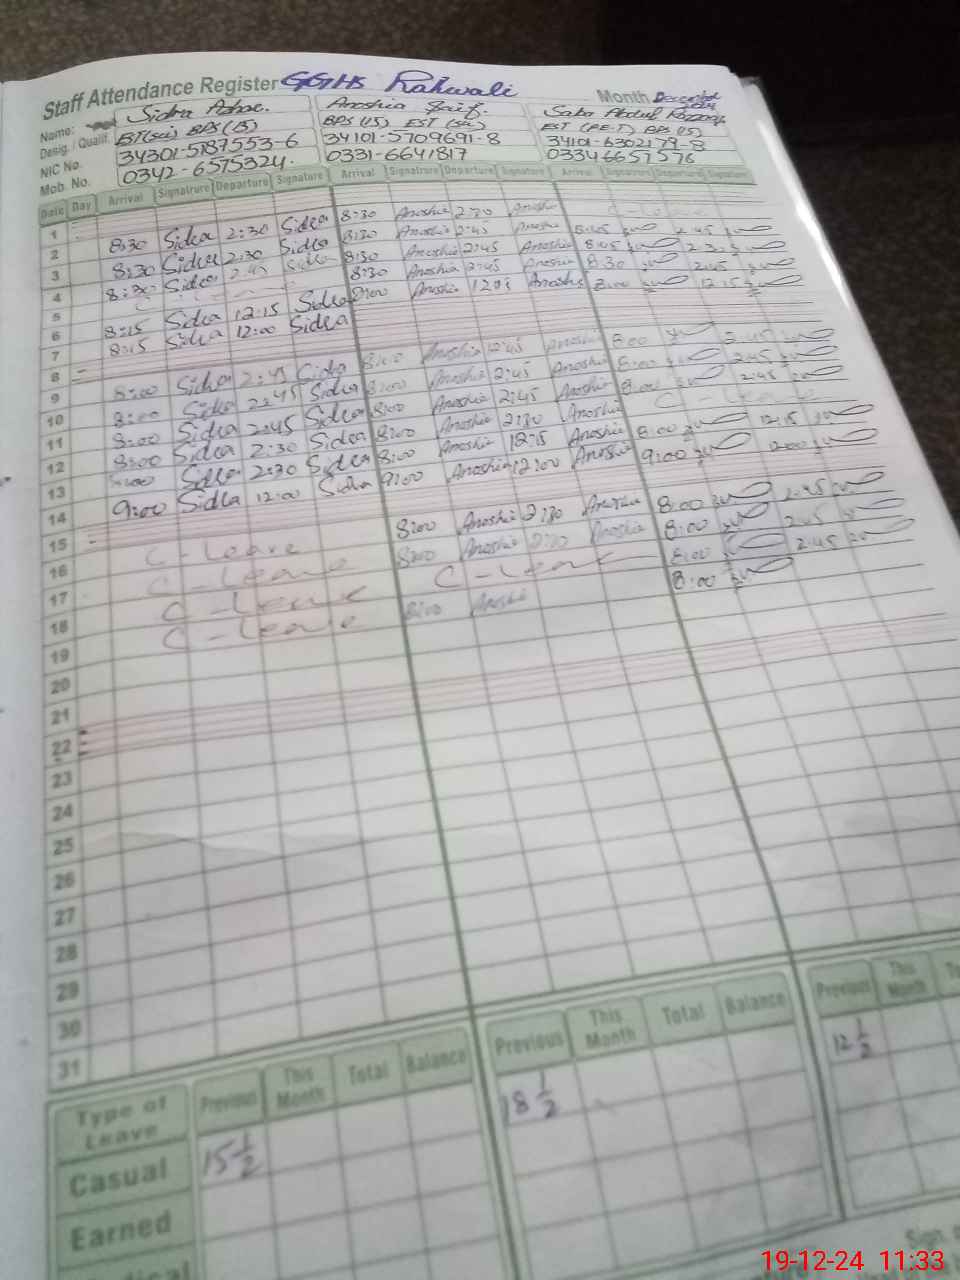 Staff Attendance Register GGHS Rahwali Month December 2024
Name: Sidra Anoshia Saif. Saba Abdul Razzaq
Desig. / Qualif. EST(sci) BPS(15) BPS (15) EST (sci) EST (PE-T) BPS (15)
NIC No. 34301-5187553-6 34101-5709691-8 34101-6302179-8
Mob. No. 0342-6575324. 0331-6641817 03346657576
Date Day Arrival Signatrure Departure Signature Arrival Signatrure Departure Signature Arrival Signatrure Departure Signature
1
2 8:30 Sidra 2:30 Sidra 8:30 Anoshia 2:30 Anoshia C-Leave
3 8:30 Sidra 2:30 Sidra 8:30 Anoshia 2:45 Anoshia 8:05 2:45
4 8:30 Sidra 2:45 Sidra 8:30 Anoshia 2:45 Anoshia 8:05
5 8:30 Anoshia 2:45 Anoshia 8:30 2:45
6 8:15 Sidra 12:15 Sidra 8:00 Anoshia 12:05 Anoshia 8:00 12:15
7 8:15 Sidra 12:00 Sidra
8
9 8:00 Sidra 2:45 Sidra 8:00 Anoshia 12:45 Anoshia 8:00 2:45
10 8:00 Sidra 2:45 Sidra 8:00 Anoshia 2:45 Anoshia 8:00 2:45
11 8:00 Sidra 2:45 Sidra 8:00 Anoshia 2:45 Anoshia 8:00 2:45
12 8:00 Sidra 2:30 Sidra 8:00 Anoshia 2:30 Anoshia C-Leave
13 8:00 Sidra 2:30 Sidra 8:00 Anoshia 12:15 Anoshia 8:00 12:15
14 9:00 Sidra 12:00 Sidra 9:00 Anoshia 12:00 Anoshia 9:00 12:00
15
16 C-Leave 8:00 Anoshia 2:30 Anoshia 8:00 2:45
17 C-Leave 8:00 Anoshia Anoshia 8:00 2:45
18 C-Leave C-Leave 8:00 2:45
19 C-Leave 8:00 Anoshi 8:00
20
21
22
23
24
25
26
27
28
29
30
31
Type of Leave Previous This Month Total Balance Previous This Month Total Balance Previous This Month
Casual 15 1/2 18 1/2 12 1/2
Earned
Sign.
19-12-24 11:33